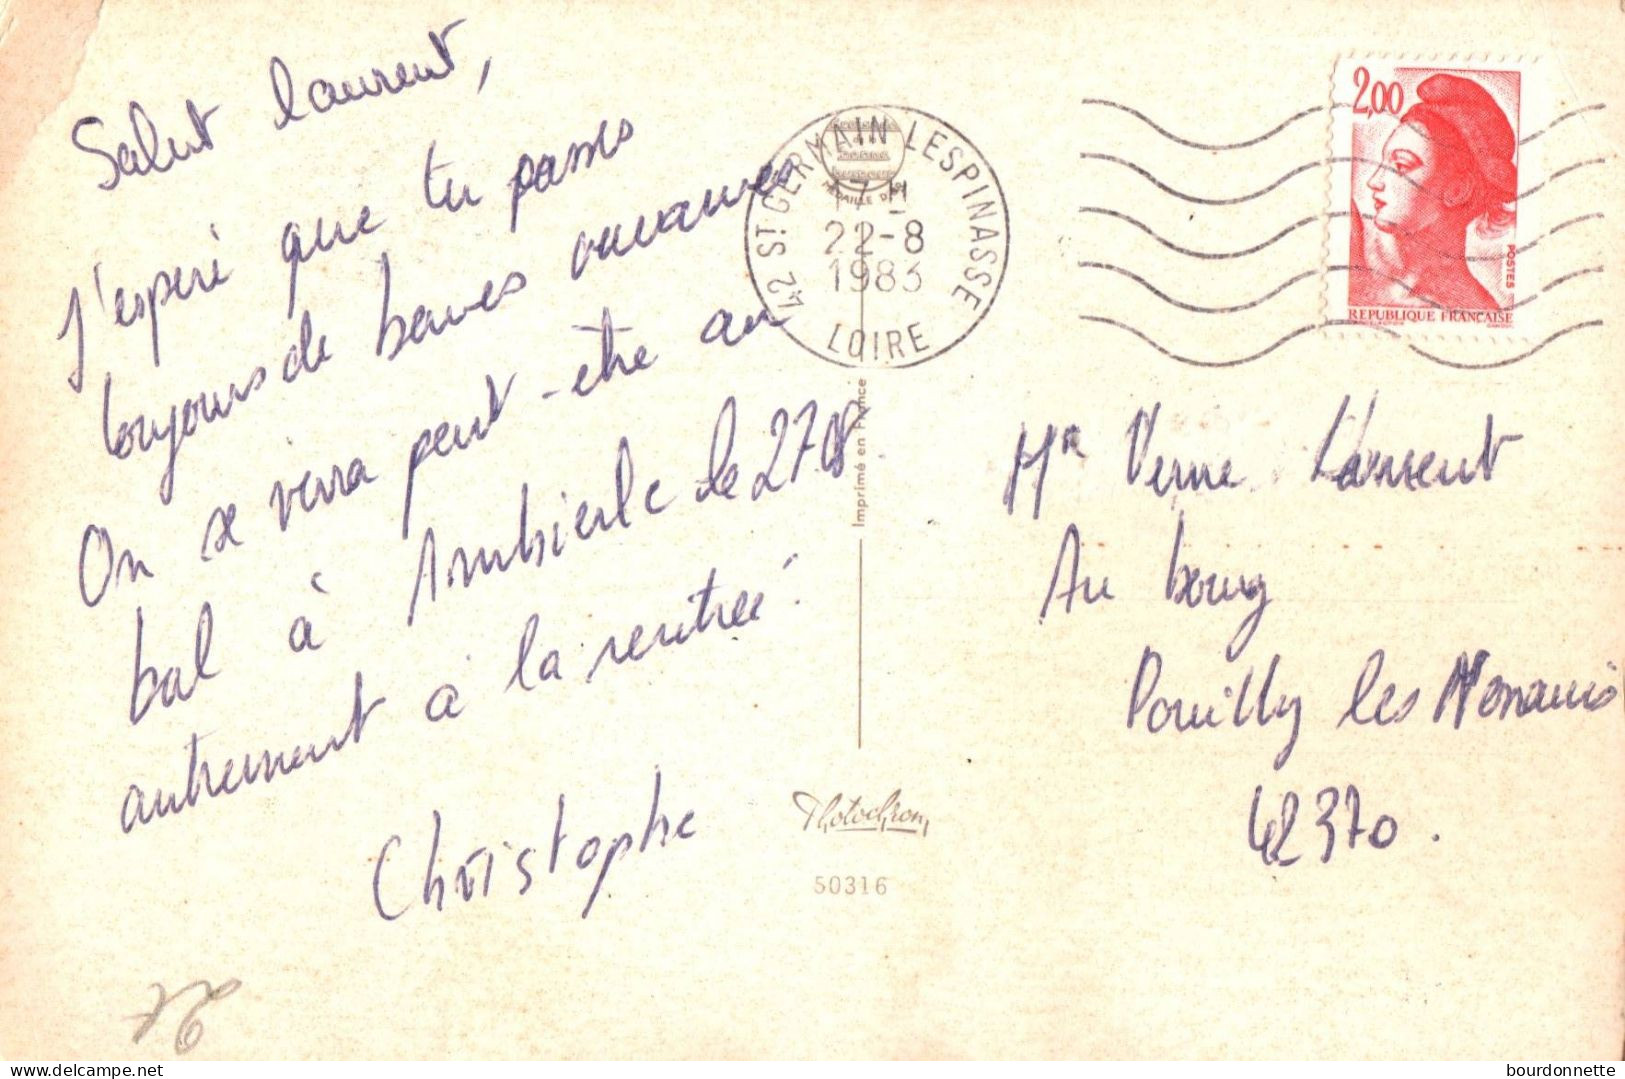 Salut Laurent,
J'espère que tu passes
toujours de bonnes vacances
On se verra peut-être au
bal à Ambierle le 27/8
autrement à la rentrée.
Christophe
42 ST GERMAIN LESPINASSE
17 H
22-8
1983
LOIRE
2,00
POSTES
REPUBLIQUE FRANÇAISE
Imprimé en France
Mr Verne Laurent
Au bourg
Pouilly les Nonains
42370.
Photochrom
50316
bourdonnette